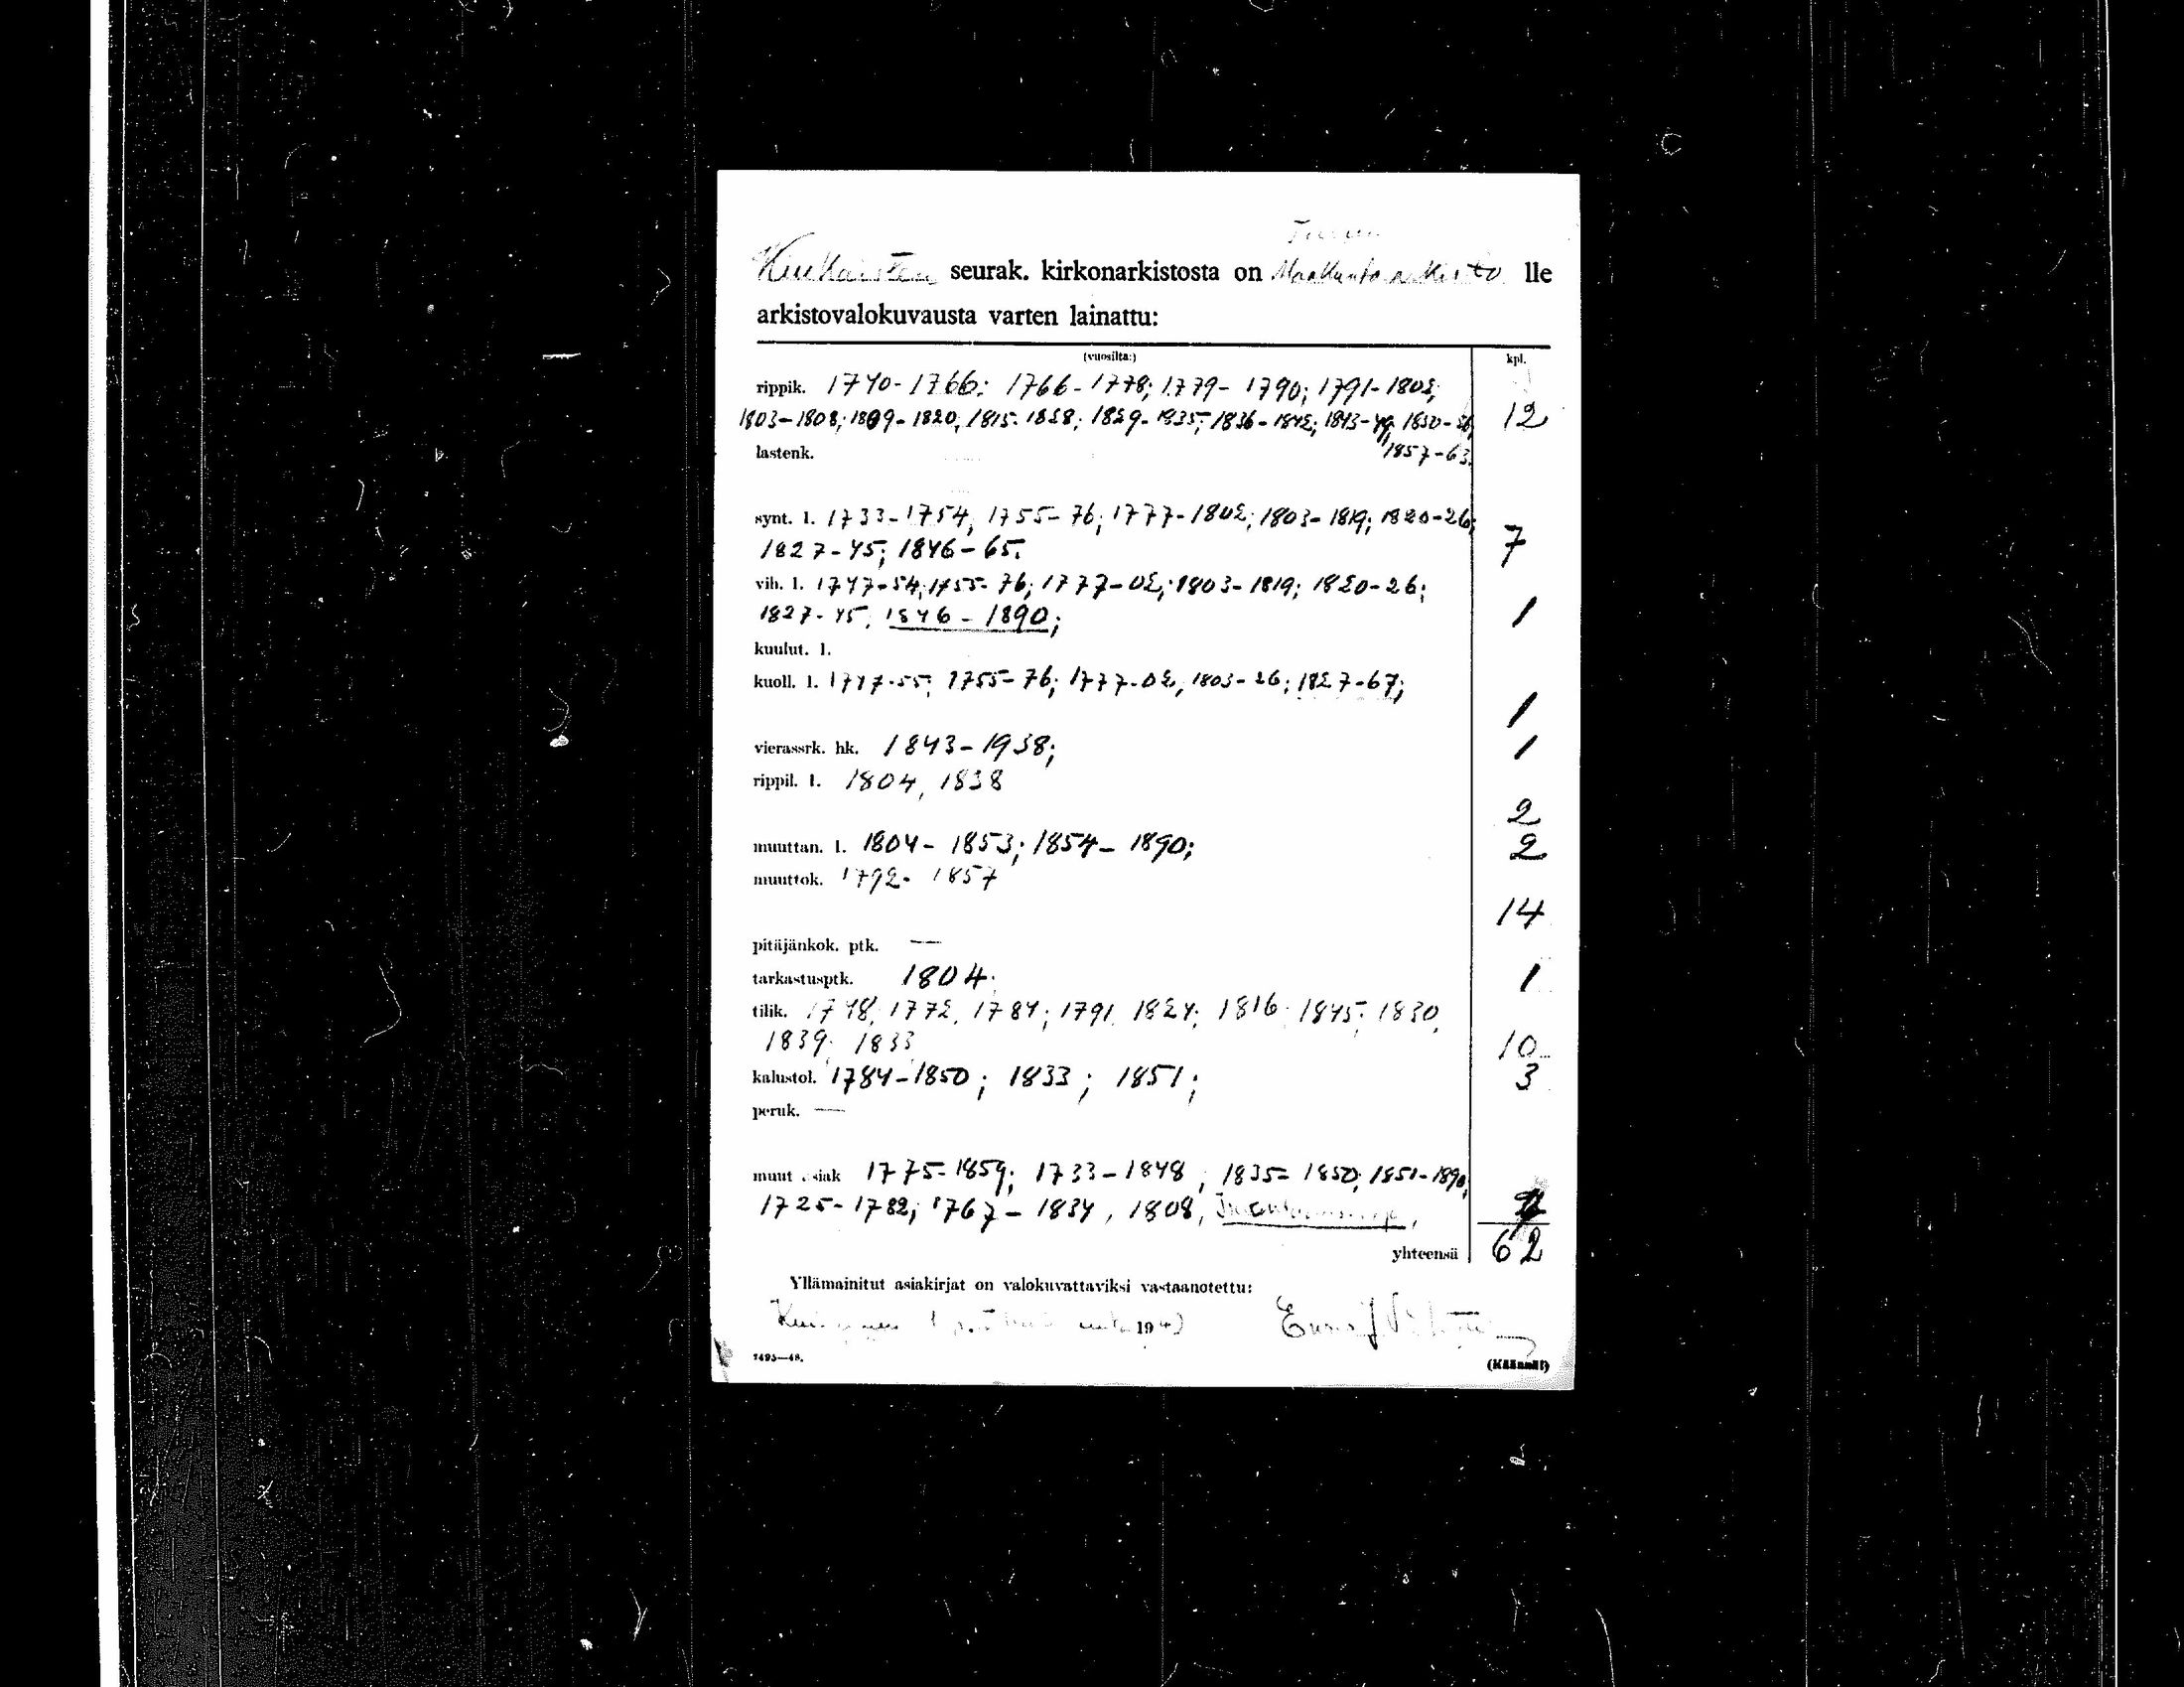 Turun
Kiukaisten seurak. kirkonarkistosta on Maakunta-arkisto lle
arkistovalokuvausta varten lainattu:
(vuosilta:) kpl.
rippik. 1740-1766; 1766-1778; 1779-1790; 1791-1802;
1803-1808; 1809-1820; 1815-1828; 1829-1835; 1836-1842; 1843-49; 1850-56, 12
lastenk. 1857-63.
synt. l. 1733-1754, 1755-76; 1777-1802; 1803-1819; 1820-26;
1827-45; 1846-65. 7
vih. l. 1747-54; 1755-76; 1777-02; 1803-1819; 1820-26;
1827-45, 1846-1890; 1
kuulut. l.
kuoll. l. 1747-55; 1755-76; 1777-02, 1803-26; 1827-67;
1
vierassrk. hk. 1843-1938; 1
rippil. l. 1804, 1838
2
muuttan. l. 1804-1853; 1854-1890; 2
muuttok. 1792-1857
14
pitäjänkok. ptk. —
tarkastusptk. 1804. 1
tilik. 1748, 1772, 1784; 1791, 1824; 1816; 1845; 1830,
1839; 1833 10
kalustol. 1784-1850; 1833; 1851; 3
peruk. —
muut asiak 1775-1859; 1733-1848, 1835-1850; 1851-1890,
1725-1782; 1767-1834, 1808,
yhteensä 62
Yllämainitut asiakirjat on valokuvattaviksi vastaanotettu:
19
7495—48.
(Käännä!)